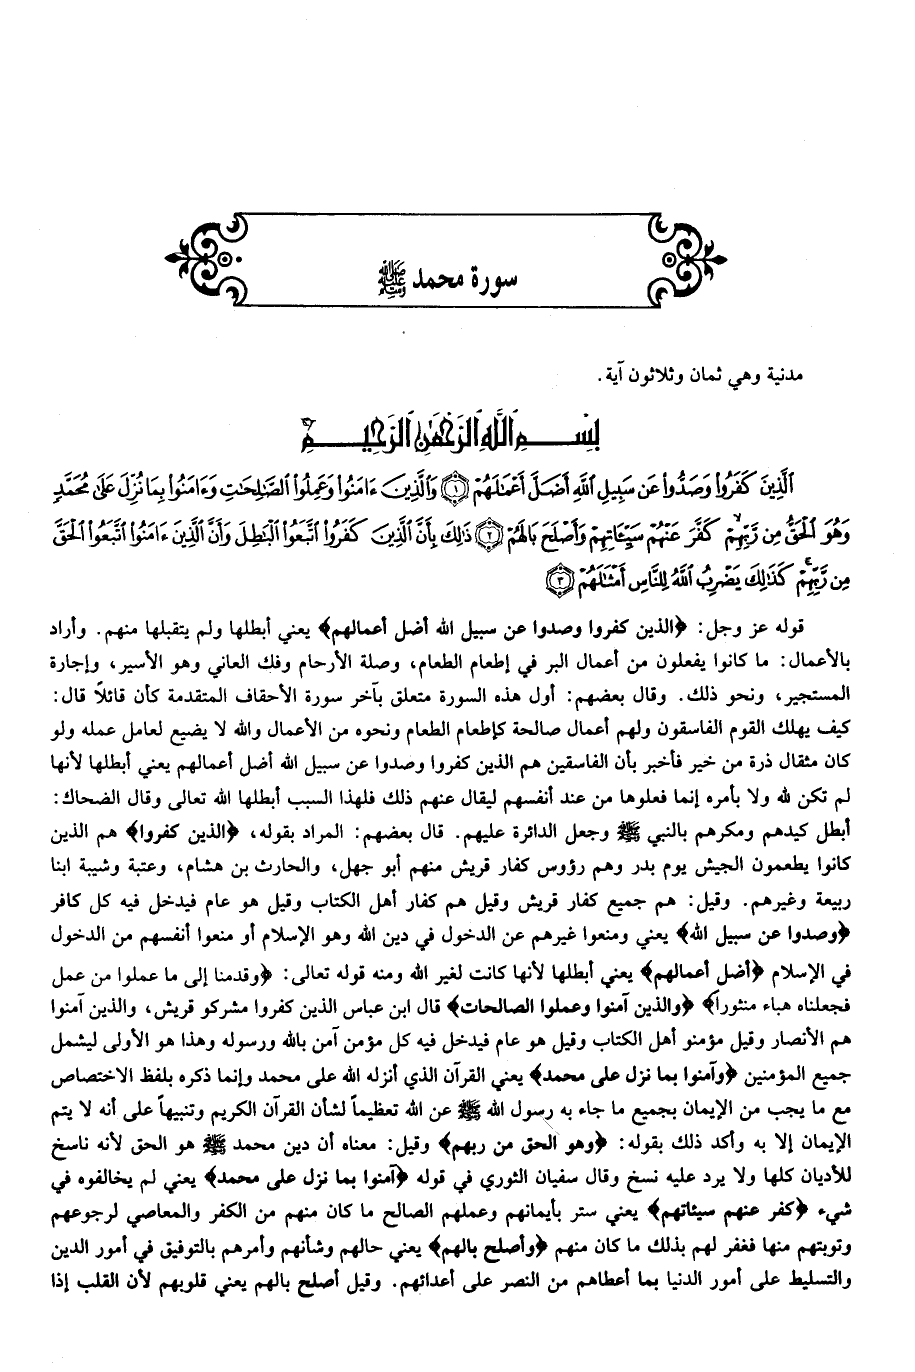 سورة محمد ﷺ
مدنية وهي ثمان وثلاثون آية.
بِسْمِ اللَّهِ الرَّحْمَٰنِ الرَّحِيمِ
الَّذِينَ كَفَرُوا وَصَدُّوا عَن سَبِيلِ اللَّهِ أَضَلَّ أَعْمَالَهُمْ ﴿١﴾ وَالَّذِينَ ءَامَنُوا وَعَمِلُوا الصَّالِحَاتِ وَءَامَنُوا بِمَا نُزِّلَ عَلَىٰ مُحَمَّدٍ
وَهُوَ الْحَقُّ مِن رَّبِّهِمْ ۙ كَفَّرَ عَنْهُمْ سَيِّئَاتِهِمْ وَأَصْلَحَ بَالَهُمْ ﴿٢﴾ ذَٰلِكَ بِأَنَّ الَّذِينَ كَفَرُوا اتَّبَعُوا الْبَاطِلَ وَأَنَّ الَّذِينَ ءَامَنُوا اتَّبَعُوا الْحَقَّ
مِن رَّبِّهِمْ ۚ كَذَٰلِكَ يَضْرِبُ اللَّهُ لِلنَّاسِ أَمْثَالَهُمْ ﴿٣﴾
قوله عز وجل: ﴿الذين كفروا وصدوا عن سبيل الله أضل أعمالهم﴾ يعني أبطلها ولم يتقبلها منهم. وأراد
بالأعمال: ما كانوا يفعلون من أعمال البر في إطعام الطعام، وصلة الأرحام وفك العاني وهو الأسير، وإجارة
المستجير، ونحو ذلك. وقال بعضهم: أول هذه السورة متعلق بآخر سورة الأحقاف المتقدمة كأن قائلاً قال:
كيف يهلك القوم الفاسقون ولهم أعمال صالحة كإطعام الطعام ونحوه من الأعمال والله لا يضيع لعامل عمله ولو
كان مثقال ذرة من خير فأخبر بأن الفاسقين هم الذين كفروا وصدوا عن سبيل الله أضل أعمالهم يعني أبطلها لأنها
لم تكن لله ولا بأمره إنما فعلوها من عند أنفسهم ليقال عنهم ذلك فلهذا السبب أبطلها الله تعالى وقال الضحاك:
أبطل كيدهم ومكرهم بالنبي ﷺ وجعل الدائرة عليهم. قال بعضهم: المراد بقوله، ﴿الذين كفروا﴾ هم الذين
كانوا يطعمون الجيش يوم بدر وهم رؤوس كفار قريش منهم أبو جهل، والحارث بن هشام، وعتبة وشيبة ابنا
ربيعة وغيرهم. وقيل: هم جميع كفار قريش وقيل هم كفار أهل الكتاب وقيل هو عام فيدخل فيه كل كافر
﴿وصدوا عن سبيل الله﴾ يعني ومنعوا غيرهم عن الدخول في دين الله وهو الإسلام أو منعوا أنفسهم من الدخول
في الإسلام ﴿أضل أعمالهم﴾ يعني أبطلها لأنها كانت لغير الله ومنه قوله تعالى: ﴿وقدمنا إلى ما عملوا من عمل
فجعلناه هباء منثوراً﴾ ﴿والذين آمنوا وعملوا الصالحات﴾ قال ابن عباس الذين كفروا مشركو قريش، والذين آمنوا
هم الأنصار وقيل مؤمنو أهل الكتاب وقيل هو عام فيدخل فيه كل مؤمن آمن بالله ورسوله وهذا هو الأولى ليشمل
جميع المؤمنين ﴿وآمنوا بما نزل على محمد﴾ يعني القرآن الذي أنزله الله على محمد وإنما ذكره بلفظ الاختصاص
مع ما يجب من الإيمان بجميع ما جاء به رسول الله ﷺ عن الله تعظيماً لشأن القرآن الكريم وتنبيهاً على أنه لا يتم
الإيمان إلا به وأكد ذلك بقوله: ﴿وهو الحق من ربهم﴾ وقيل: معناه أن دين محمد ﷺ هو الحق لأنه ناسخ
للأديان كلها ولا يرد عليه نسخ وقال سفيان الثوري في قوله ﴿آمنوا بما نزل على محمد﴾ يعني لم يخالفوه في
شيء ﴿كفر عنهم سيئاتهم﴾ يعني ستر بأيمانهم وعملهم الصالح ما كان منهم من الكفر والمعاصي لرجوعهم
وتوبتهم منها فغفر لهم بذلك ما كان منهم ﴿وأصلح بالهم﴾ يعني حالهم وشأنهم وأمرهم بالتوفيق في أمور الدين
والتسليط على أمور الدنيا بما أعطاهم من النصر على أعدائهم. وقيل أصلح بالهم يعني قلوبهم لأن القلب إذا